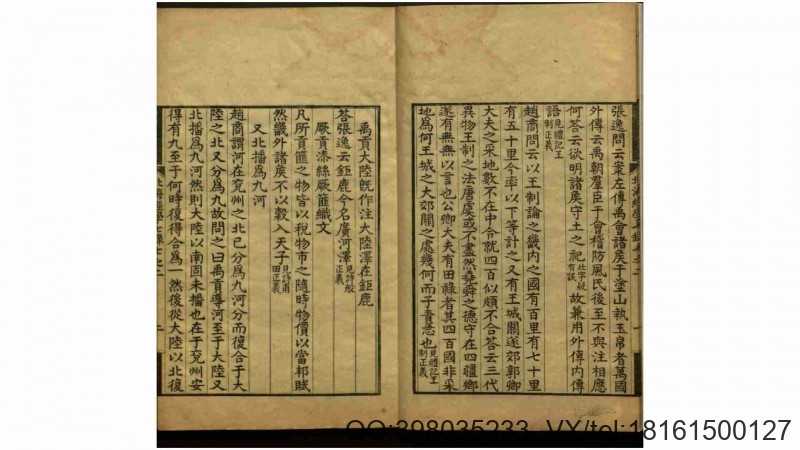 張逸問云案左傳禹會諸矦于塗山執玉帛者萬國
外傳云禹朝羣臣于會稽防風氏後至不與注相應
何答云欲明諸矦守土之祀故兼用外傳內傳
語見禮記王制正義
趙商問云以王制論之畿內之國有百里有七十里
有五十里今率以下等計之又有王城關遂郊郭卿
大夫之采地數不在中今就四百似頗不合答云三代
異物王制之法唐虞或不盡然堯舜之德守在四疆鄉
遂有無無以言也公卿大夫有田祿者其四百國非采
地爲何王城之大郊關之處幾何而子責急也見禮記王制正義
禹貢大陸旣作注大陸澤在鉅鹿
荅張逸云鉅鹿今名廣河澤
厥貢漆絲厥篚織文
凡所貢篚之物皆以稅物市之隨時物價以當邦賦
然畿外諸矦不以穀入天子見詩甫田正義
又北播爲九河
趙商謂河在兖州之北已分爲九河分而復合于大
陸之北又分爲九故問之曰禹貢導河至于大陸又
北播爲九河然則大陸以南固未播也在于兖州安
得有九至于何時復得合爲一然後從大陸以北復
QQ:398035233 VX/tel:18161500127